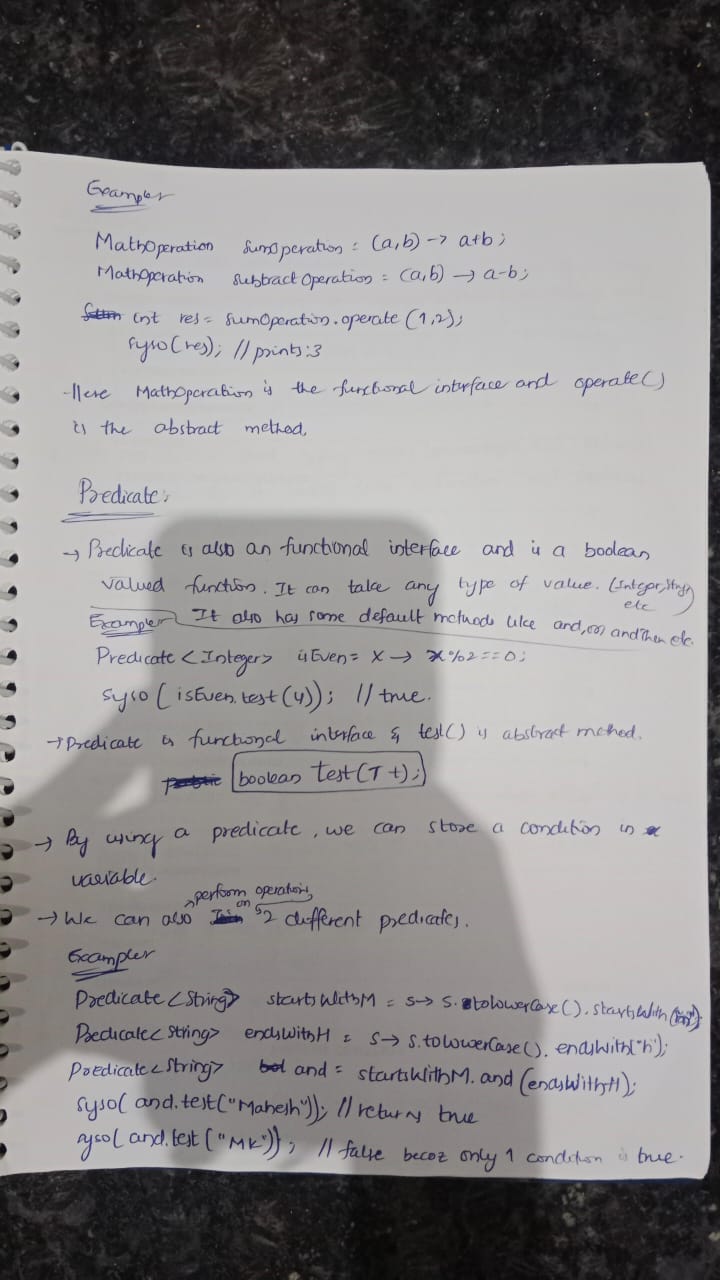 Examples
MathOperation sumOperation = (a,b) -> a+b;
MathOperation subtractOperation = (a,b) -> a-b;
int res = sumOperation.operate (1,2);
syso(res); // prints:3
Here MathOperation is the functional interface and operate()
is the abstract method.
Predicate:
→ Predicate is also an functional interface and is a boolean
valued function. It can take any type of value. (Integer, String
etc)
Examples It also has some default methods like and, or, andThen etc.
Predicate <Integer> isEven = x → x%2==0;
syso (isEven.test(4)); // true.
→ Predicate is functional interface & test() is abstract method.
boolean test(T t);
→ By using a predicate, we can store a condition in
variable.
→ We can also perform operations on 2 different predicates.
Examples
Predicate <String> startsWithM = s→ s.toLowerCase().startsWith("m");
Predicate<String> endsWithH = s→ s.toLowerCase().endsWith("h");
Predicate<String> and = startsWithM.and(endsWithH);
syso( and.test("Mahesh")); // returns true
syso( and.test ("MK")); // false becoz only 1 condition is true.